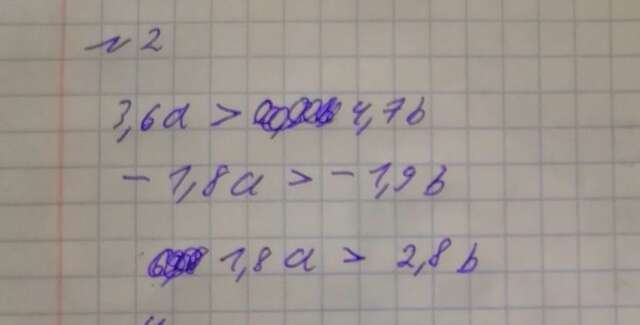 № 2
3,6a > 4,7b
- 1,8a > - 1,9b
1,8a > 2,8b